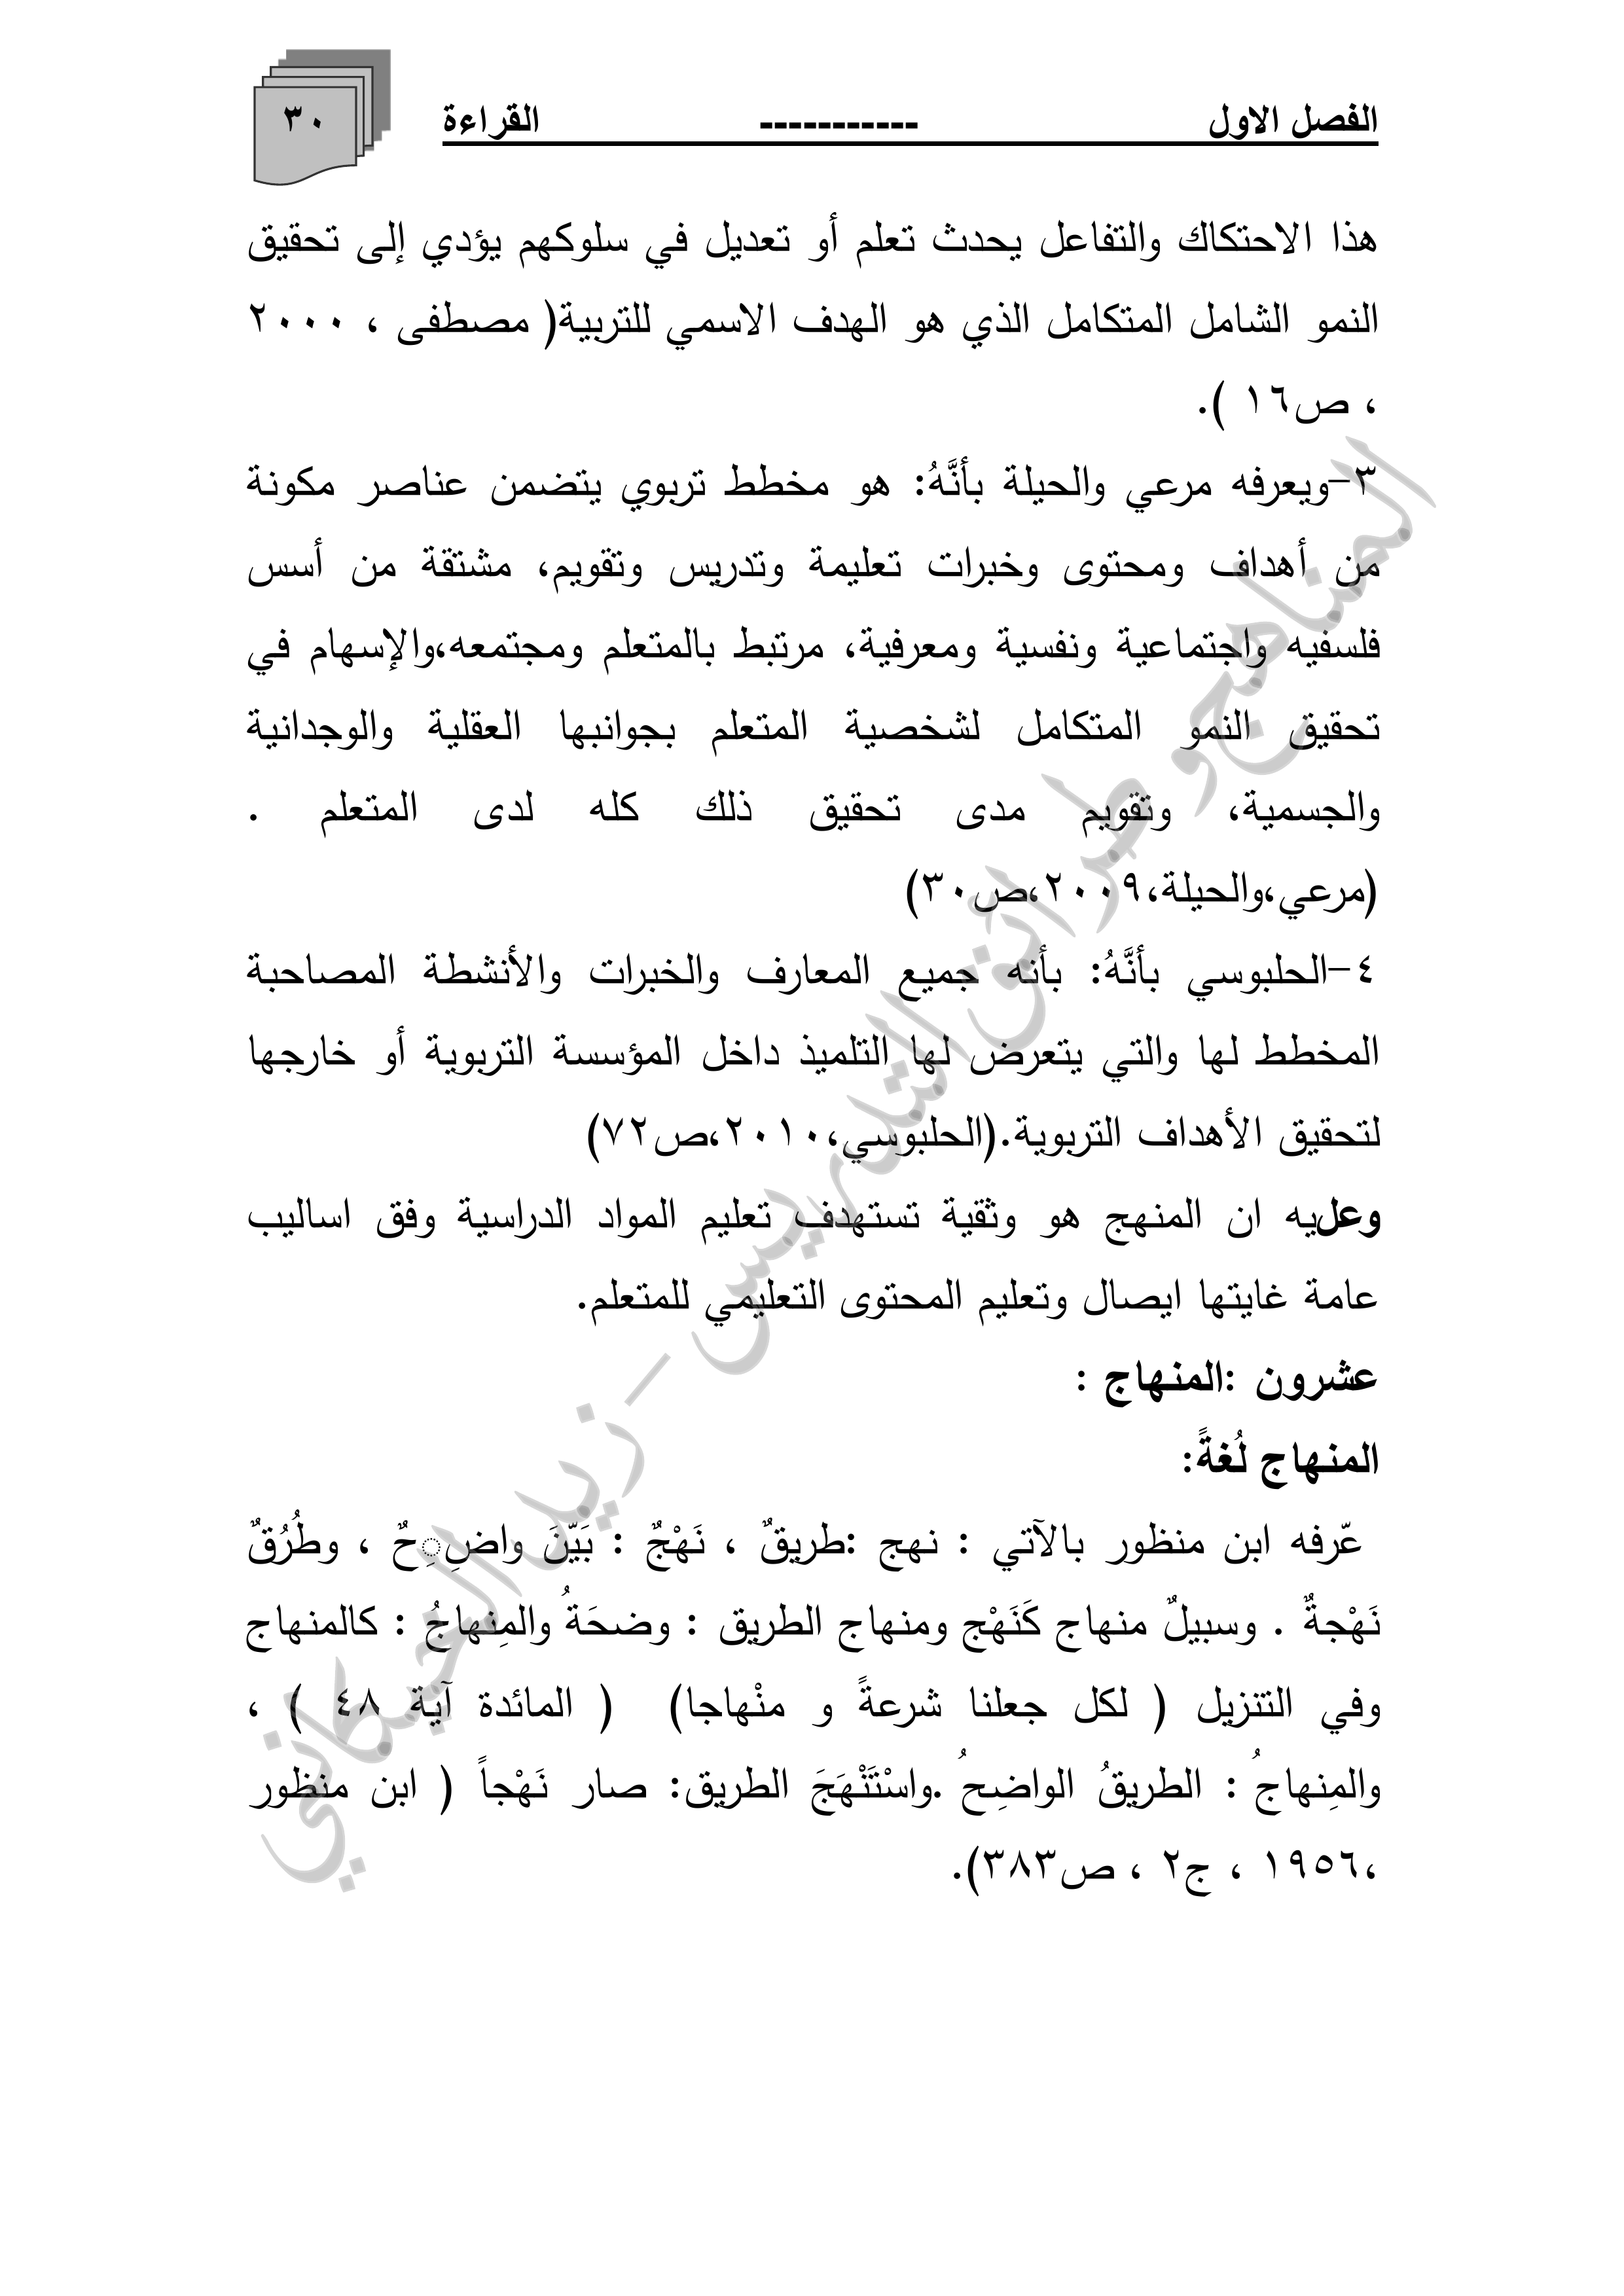 الفصل الاول ----------- القراءة ٣٠
هذا الاحتكاك والتفاعل يحدث تعلم أو تعديل في سلوكهم يؤدي إلى تحقيق
النمو الشامل المتكامل الذي هو الهدف الاسمي للتربية( مصطفى ، ٢٠٠٠
، ص١٦ ).
٣-ويعرفه مرعي والحيلة بأنَّهُ: هو مخطط تربوي يتضمن عناصر مكونة
من أهداف ومحتوى وخبرات تعليمة وتدريس وتقويم، مشتقة من أسس
فلسفيه واجتماعية ونفسية ومعرفية، مرتبط بالمتعلم ومجتمعه،والإسهام في
تحقيق النمو المتكامل لشخصية المتعلم بجوانبها العقلية والوجدانية
والجسمية، وتقويم مدى تحقيق ذلك كله لدى المتعلم .
(مرعي،والحيلة،٢٠٠٩،ص٣٠)
٤-الحلبوسي بأنَّهُ: بأنه جميع المعارف والخبرات والأنشطة المصاحبة
المخطط لها والتي يتعرض لها التلميذ داخل المؤسسة التربوية أو خارجها
لتحقيق الأهداف التربوية.(الحلبوسي،٢٠١٠،ص٧٢)
وعليه ان المنهج هو وثقية تستهدف تعليم المواد الدراسية وفق اساليب
عامة غايتها ايصال وتعليم المحتوى التعليمي للمتعلم.
عشرون :المنهاج :
المنهاج لُغةً:
عّرفه ابن منظور بالآتي : نهج :طريقٌ ، نَهْجٌ : بَيّنَ واضِِحٌ ، وطُرُقٌ
نَهْجةٌ . وسبيلٌ منهاج كَنَهْج ومنهاج الطريق : وضحَةُ والمِنهاجُ : كالمنهاج
وفي التنزيل ( لكل جعلنا شرعةً و منْهاجا) ( المائدة آية ٤٨ ) ،
والمِنهاجُ : الطريقُ الواضِحُ .واسْتَنْهَجَ الطريق: صار نَهْجاً ( ابن منظور
،١٩٥٦ ، ج٢ ، ص٣٨٣).
المناهج وطرائق التدريس - زيد الخيكاني